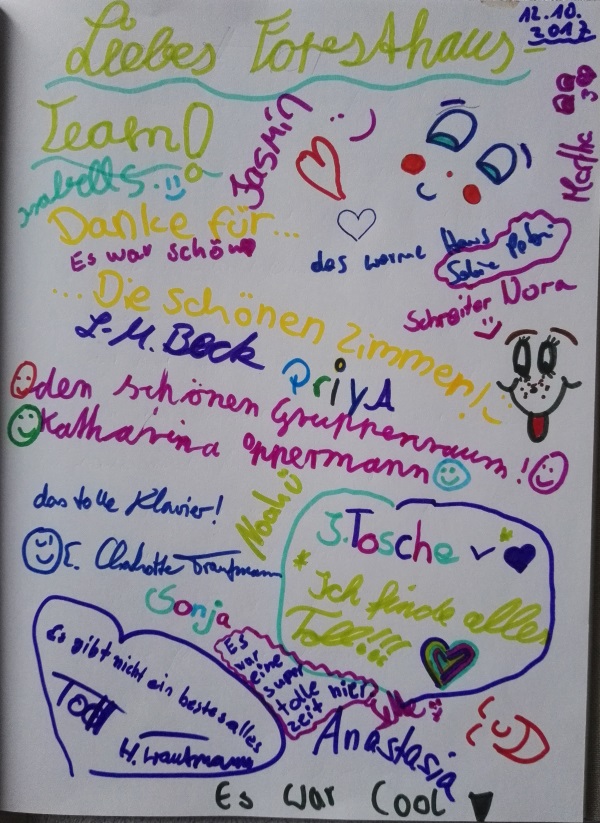 12.10.
2017
Liebes Foresthaus-
Team!
Jasmin
Martha
Isabell S.
Danke für...
Es war schön
das warme Haus
Schreiter Nora
...Die schönen Zimmer!
L.M. Beck
PriyA
den schönen Gruppenraum!
Katharina Oppermann
das tolle Klavier!
Noah
E. Charlotte Trautmann
J. Tosche
Ich finde alles
Toll!!!
Sonja
Es
war
eine
super
tolle hier
zeit
Es gibt nicht ein bestes alles
Toll
W. Trautmann
Anastasia
Es war Cool